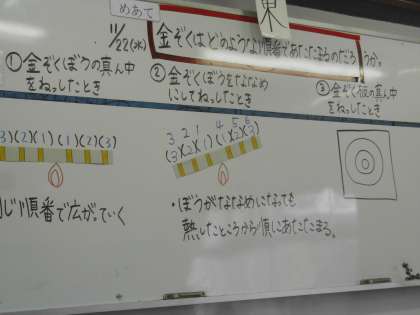 めあて
東
11/22(水)
金ぞくはどのような順番であたたまるのだろうか。
①金ぞくぼうの真ん中
をねっしたとき
②金ぞくぼうをななめ
にしてねっしたとき
③金ぞく板の真ん中
をねっしたとき
3)(2)(1)(1)(2)(3)
じ順番で広がっていく
3 2 1 4 5 6
(3)(2)(1)(1)(2)(3)
・ぼうがななめになっても
熱したところから順にあたたまる。